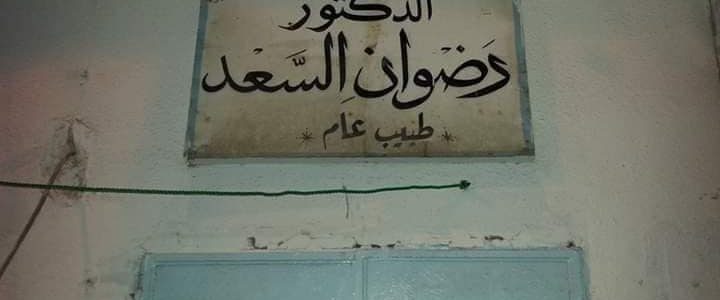 الدكتور
رَضْوان السَّعْد
* طبيب عام *